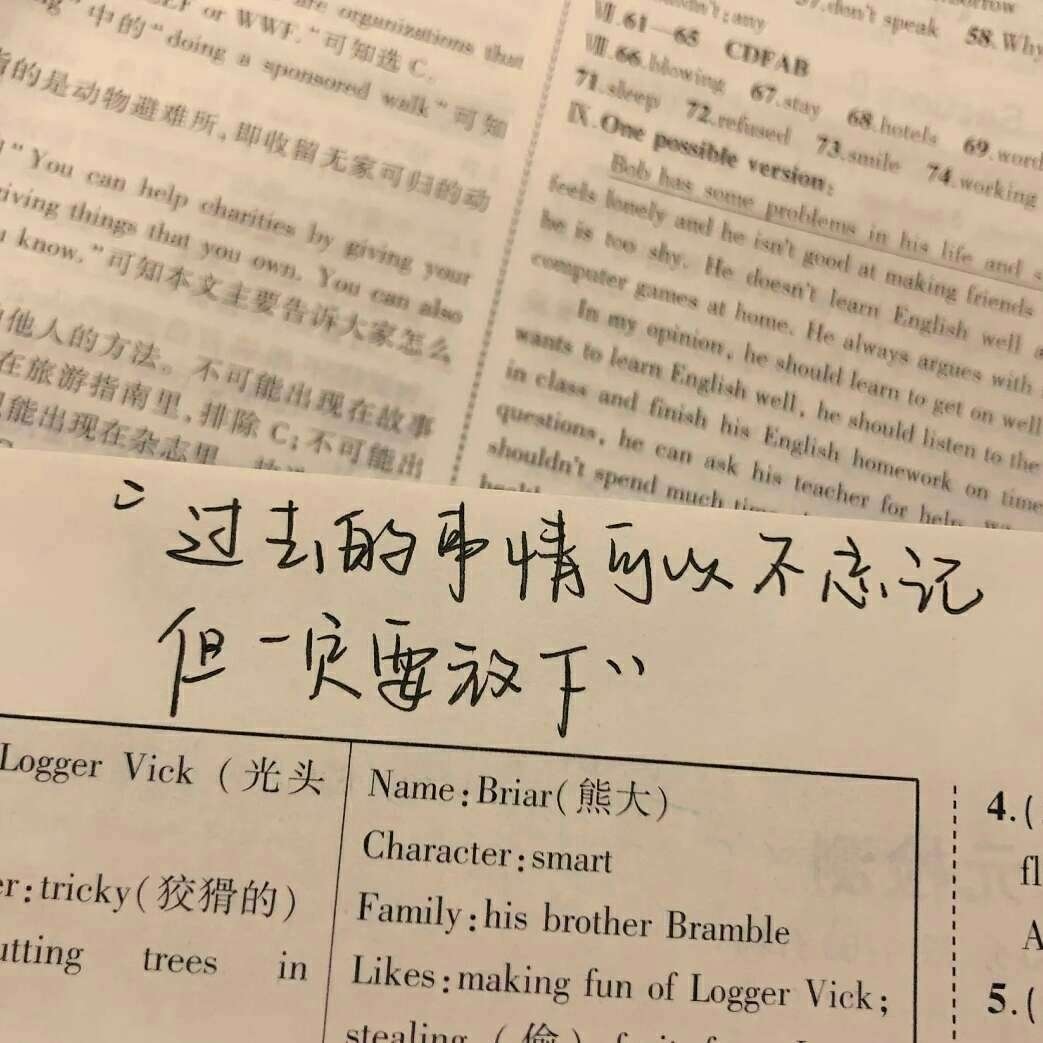 are organizations that
EF or WWF."可知选 C.
中的"doing a sponsored walk"可知
的是动物避难所,即收留无家可归的动
"You can help charities by giving your
giving things that you own. You can also
know."可知本文主要告诉大家怎么
他人的方法。不可能出现在故事
在旅游指南里,排除 C;不可能出
能出现在杂志里
don't speak 58.Why
Ⅶ.61—65 CDFAB
Ⅷ.66.blowing 67.stay 68.hotels 69.word
71.sleep 72.refused 73.smile 74.working
Ⅸ.One possible version:
Bob has some problems in his life and s
feels lonely and he isn't good at making friends
he is too shy. He doesn't learn English well a
computer games at home. He always argues with
In my opinion, he should learn to get on well
wants to learn English well, he should listen to the
in class and finish his English homework on time
questions, he can ask his teacher for help
shouldn't spend much
"过去的事情可以不忘记
但一定要放下"
Logger Vick (光头
er:tricky(狡猾的)
utting trees in
Name:Briar(熊大)
Character:smart
Family:his brother Bramble
Likes:making fun of Logger Vick;
stealing (偷)
4.(
fl
A
5.(